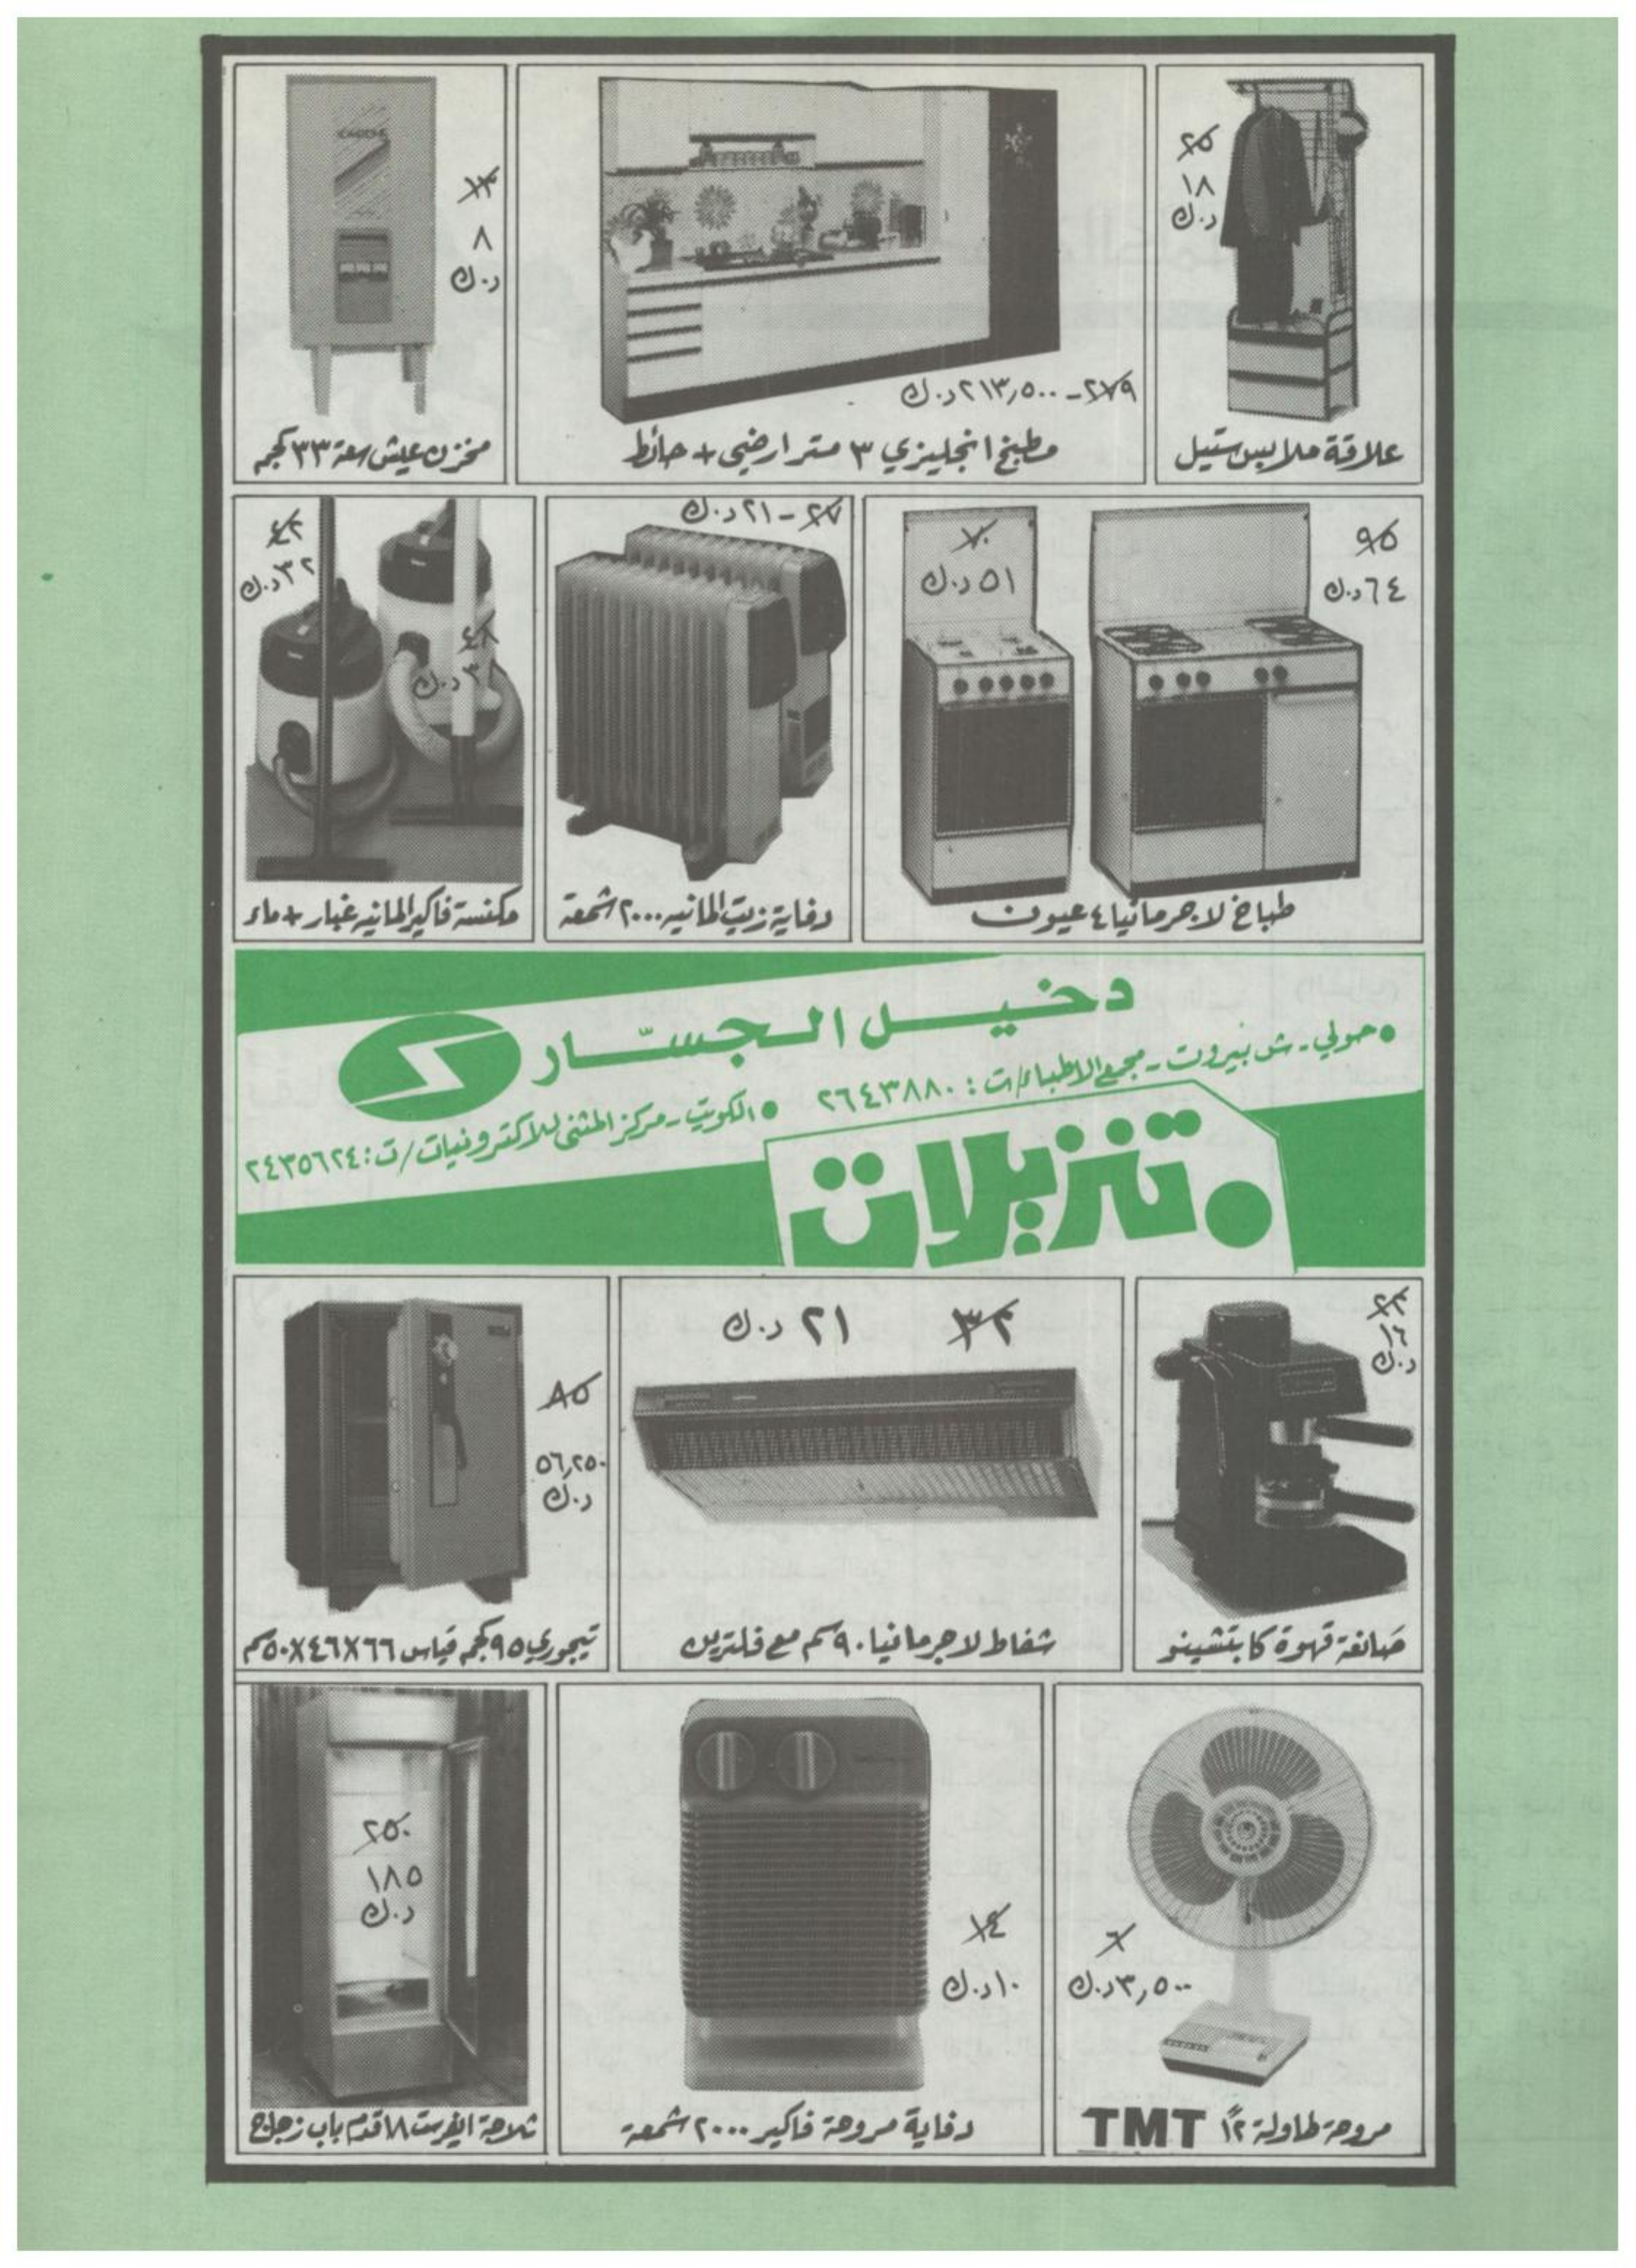 ٢٥
١٨
د.ك
علاقة ملابس ستيل
٢٧٩ - ٢١٣,٥٠٠ د.ك
مطبخ انجليزي ٣ متر ارضي + حائط
١٣
٨
د.ك
مخزن عيش سعة ٣٣ كجم
٩٥
٦٤ د.ك
٧٠
٥١ د.ك
طباخ لاجرمانيا ٤ عيون
٢٧ - ٢١ د.ك
دفاية زيت المانيه ٢٠٠٠ شمعة
٤٢
٣٢ د.ك
٤٨
٣٨ د.ك
مكنسة فاكير المانيه غبار + ماء
دخيل الجسّار
• حولي - ش بيروت - مجمع الاطباء / ت : ٢٦٤٣٨٨٠
• الكويت - مركز المثنى للالكترونيات / ت : ٢٤٣٥٦٢٤
• تنزيلات
٢٣
١٦
د.ك
صانعة قهوة كابتشينو
٣٢
٢١ د.ك
شفاط لاجرمانيا ٩٠ سم مع فلترين
٨٥
٥٦,٢٥٠
د.ك
تيجوري ٩٥ كجم قياس ٦٦X٤٦X٥٠ سم
٦
٣,٥٠٠ د.ك
مروحة طاولة ١٢" TMT
١٤
١٠ د.ك
دفاية مروحة فاكير ٢٠٠٠ شمعة
٢٥٠
١٨٥
د.ك
ثلاجة ايفرست ١٨ قدم باب زجاج